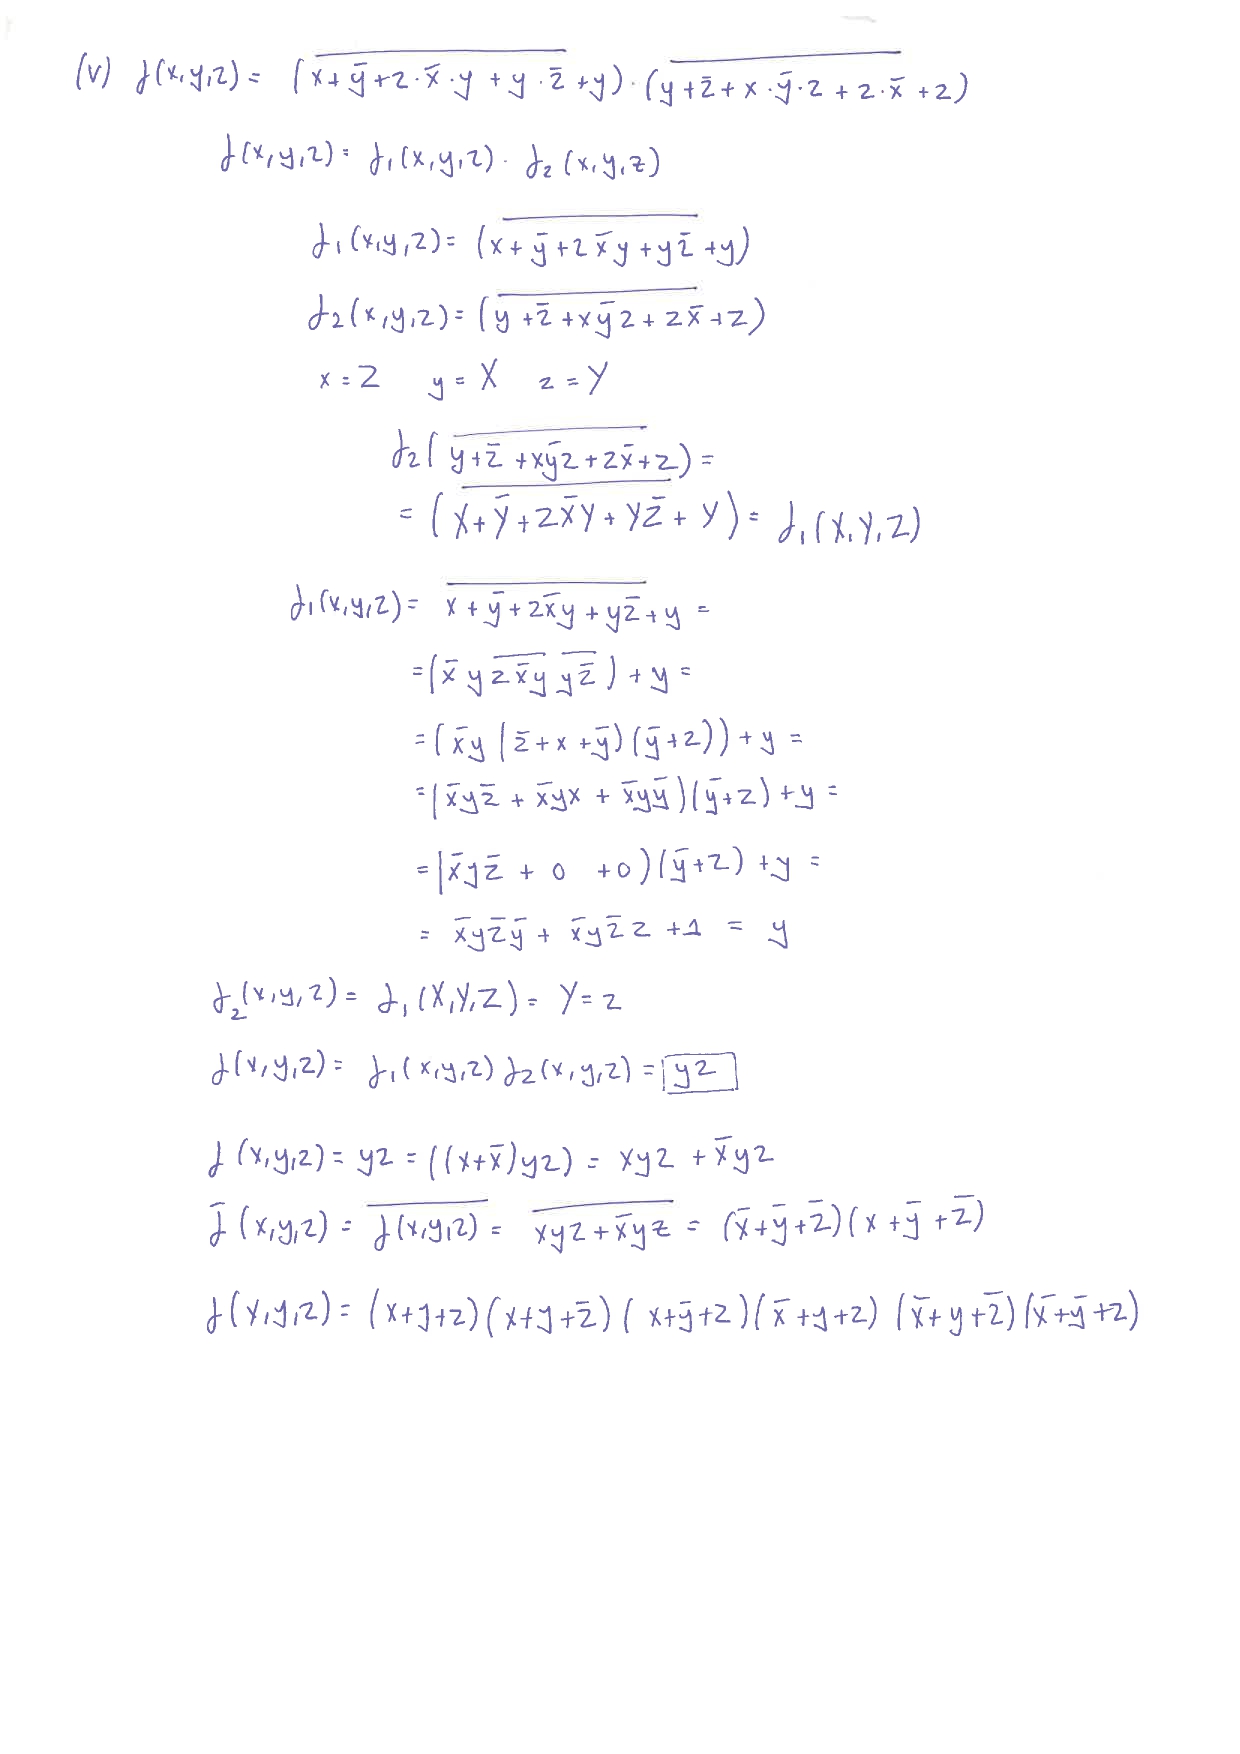 (v) f(x,y,z) = (\overline{x+ȳ+z·x̄·y+y·z̄}+y)·(\overline{y+z̄+x·ȳ·z+z·x̄}+z)
f(x,y,z) = f₁(x,y,z)·f₂(x,y,z)
f₁(x,y,z) = (\overline{x+ȳ+zx̄y+yz̄}+y)
f₂(x,y,z) = (\overline{y+z̄+xȳz+zx̄}+z)
x = Z y = X z = Y
f₂(\overline{y+z̄+xȳz+zx̄}+z) =
= (\overline{X+Ȳ+ZX̄Y+YZ̄}+Y) = f₁(X,Y,Z)
f₁(x,y,z) = \overline{x+ȳ+zx̄y+yz̄}+y =
= (x̄y\overline{zx̄y} \overline{yz̄})+y =
= (x̄y(z̄+x+ȳ)(ȳ+z))+y =
= (x̄yz̄+x̄yx+x̄yȳ)(ȳ+z)+y =
= (x̄yz̄+0+0)(ȳ+z)+y =
= x̄yz̄ȳ+x̄yz̄z+1 = y
f₂(x,y,z) = f₁(X,Y,Z) = Y = z
f(x,y,z) = f₁(x,y,z)f₂(x,y,z) = yz
f(x,y,z) = yz = ((x+x̄)yz) = xyz+x̄yz
f̄(x,y,z) = \overline{f(x,y,z)} = \overline{xyz+x̄yz} = (x̄+ȳ+z̄)(x+ȳ+z̄)
f(x,y,z) = (x+y+z)(x+y+z̄)(x+ȳ+z)(x̄+y+z)(x̄+y+z̄)(x̄+ȳ+z)